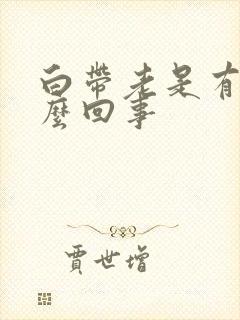 白帶老是有
麼回事
賈世增